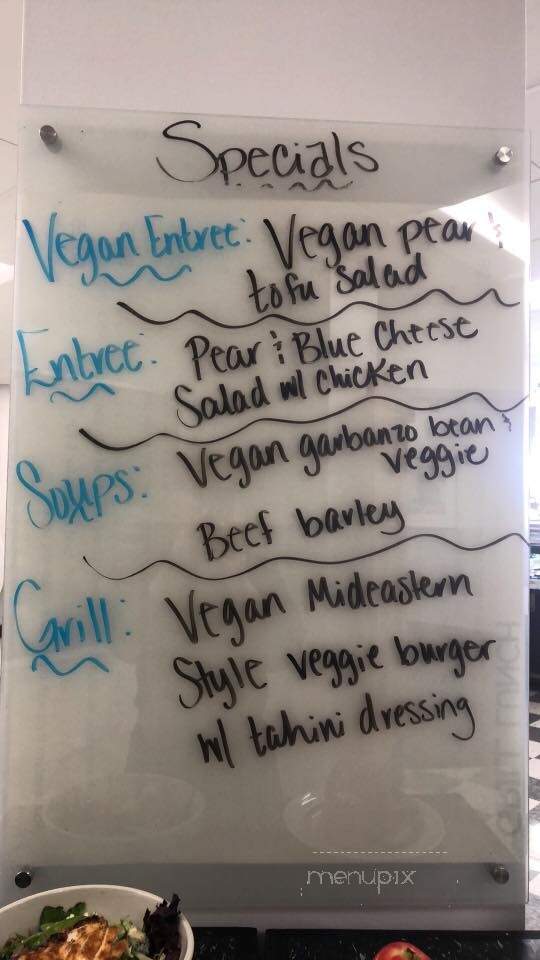 Specials
Vegan Entree: Vegan pear &
tofu salad
Entree: Pear & Blue Cheese
Salad w/ Chicken
Soups: Vegan garbanzo bean &
veggie
Beef barley
Grill: Vegan Mideastern
Style veggie burger
w/ tahini dressing
GRILL LUNCH
menupix